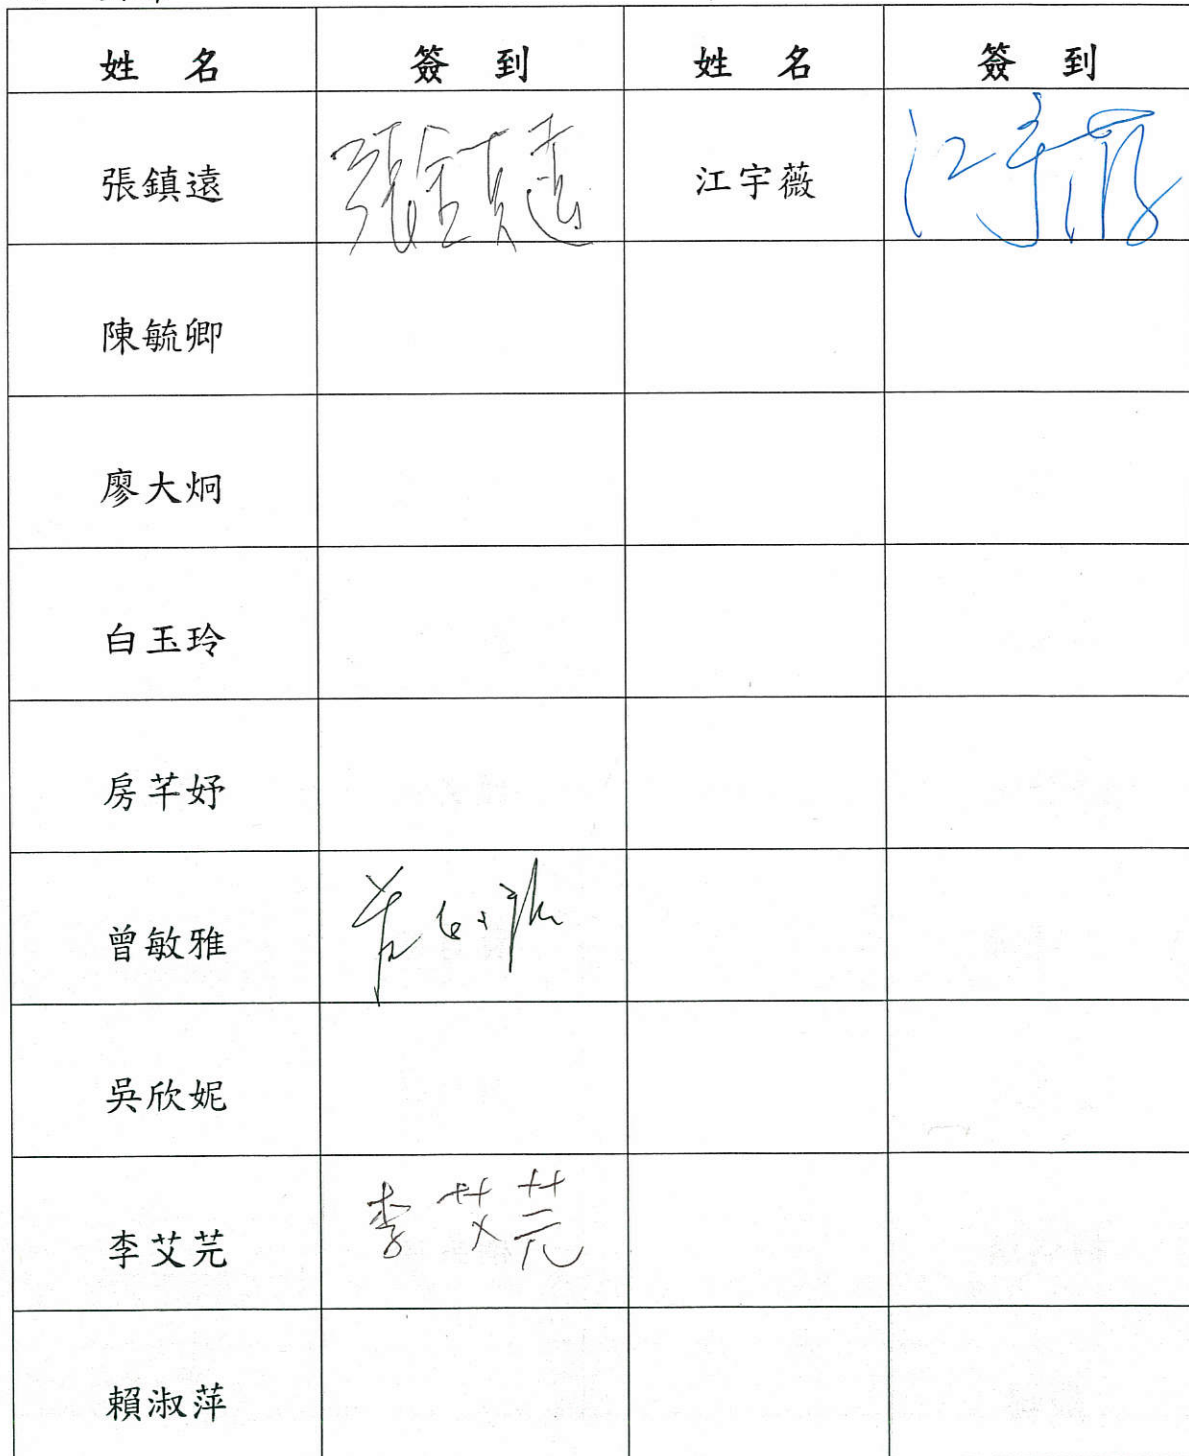 姓 名 簽 到 姓 名 簽 到
張鎮遠 張鎮遠 江宇薇 江宇薇
陳毓卿
廖大炯
白玉玲
房芊妤
曾敏雅 曾敏雅
吳欣妮
李艾芫 李艾芫
賴淑萍